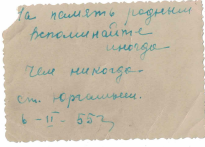 На память родным
Вспоминайте
иногда
Чем никогда.
ст. Юргамыш.
6-II-55 г.